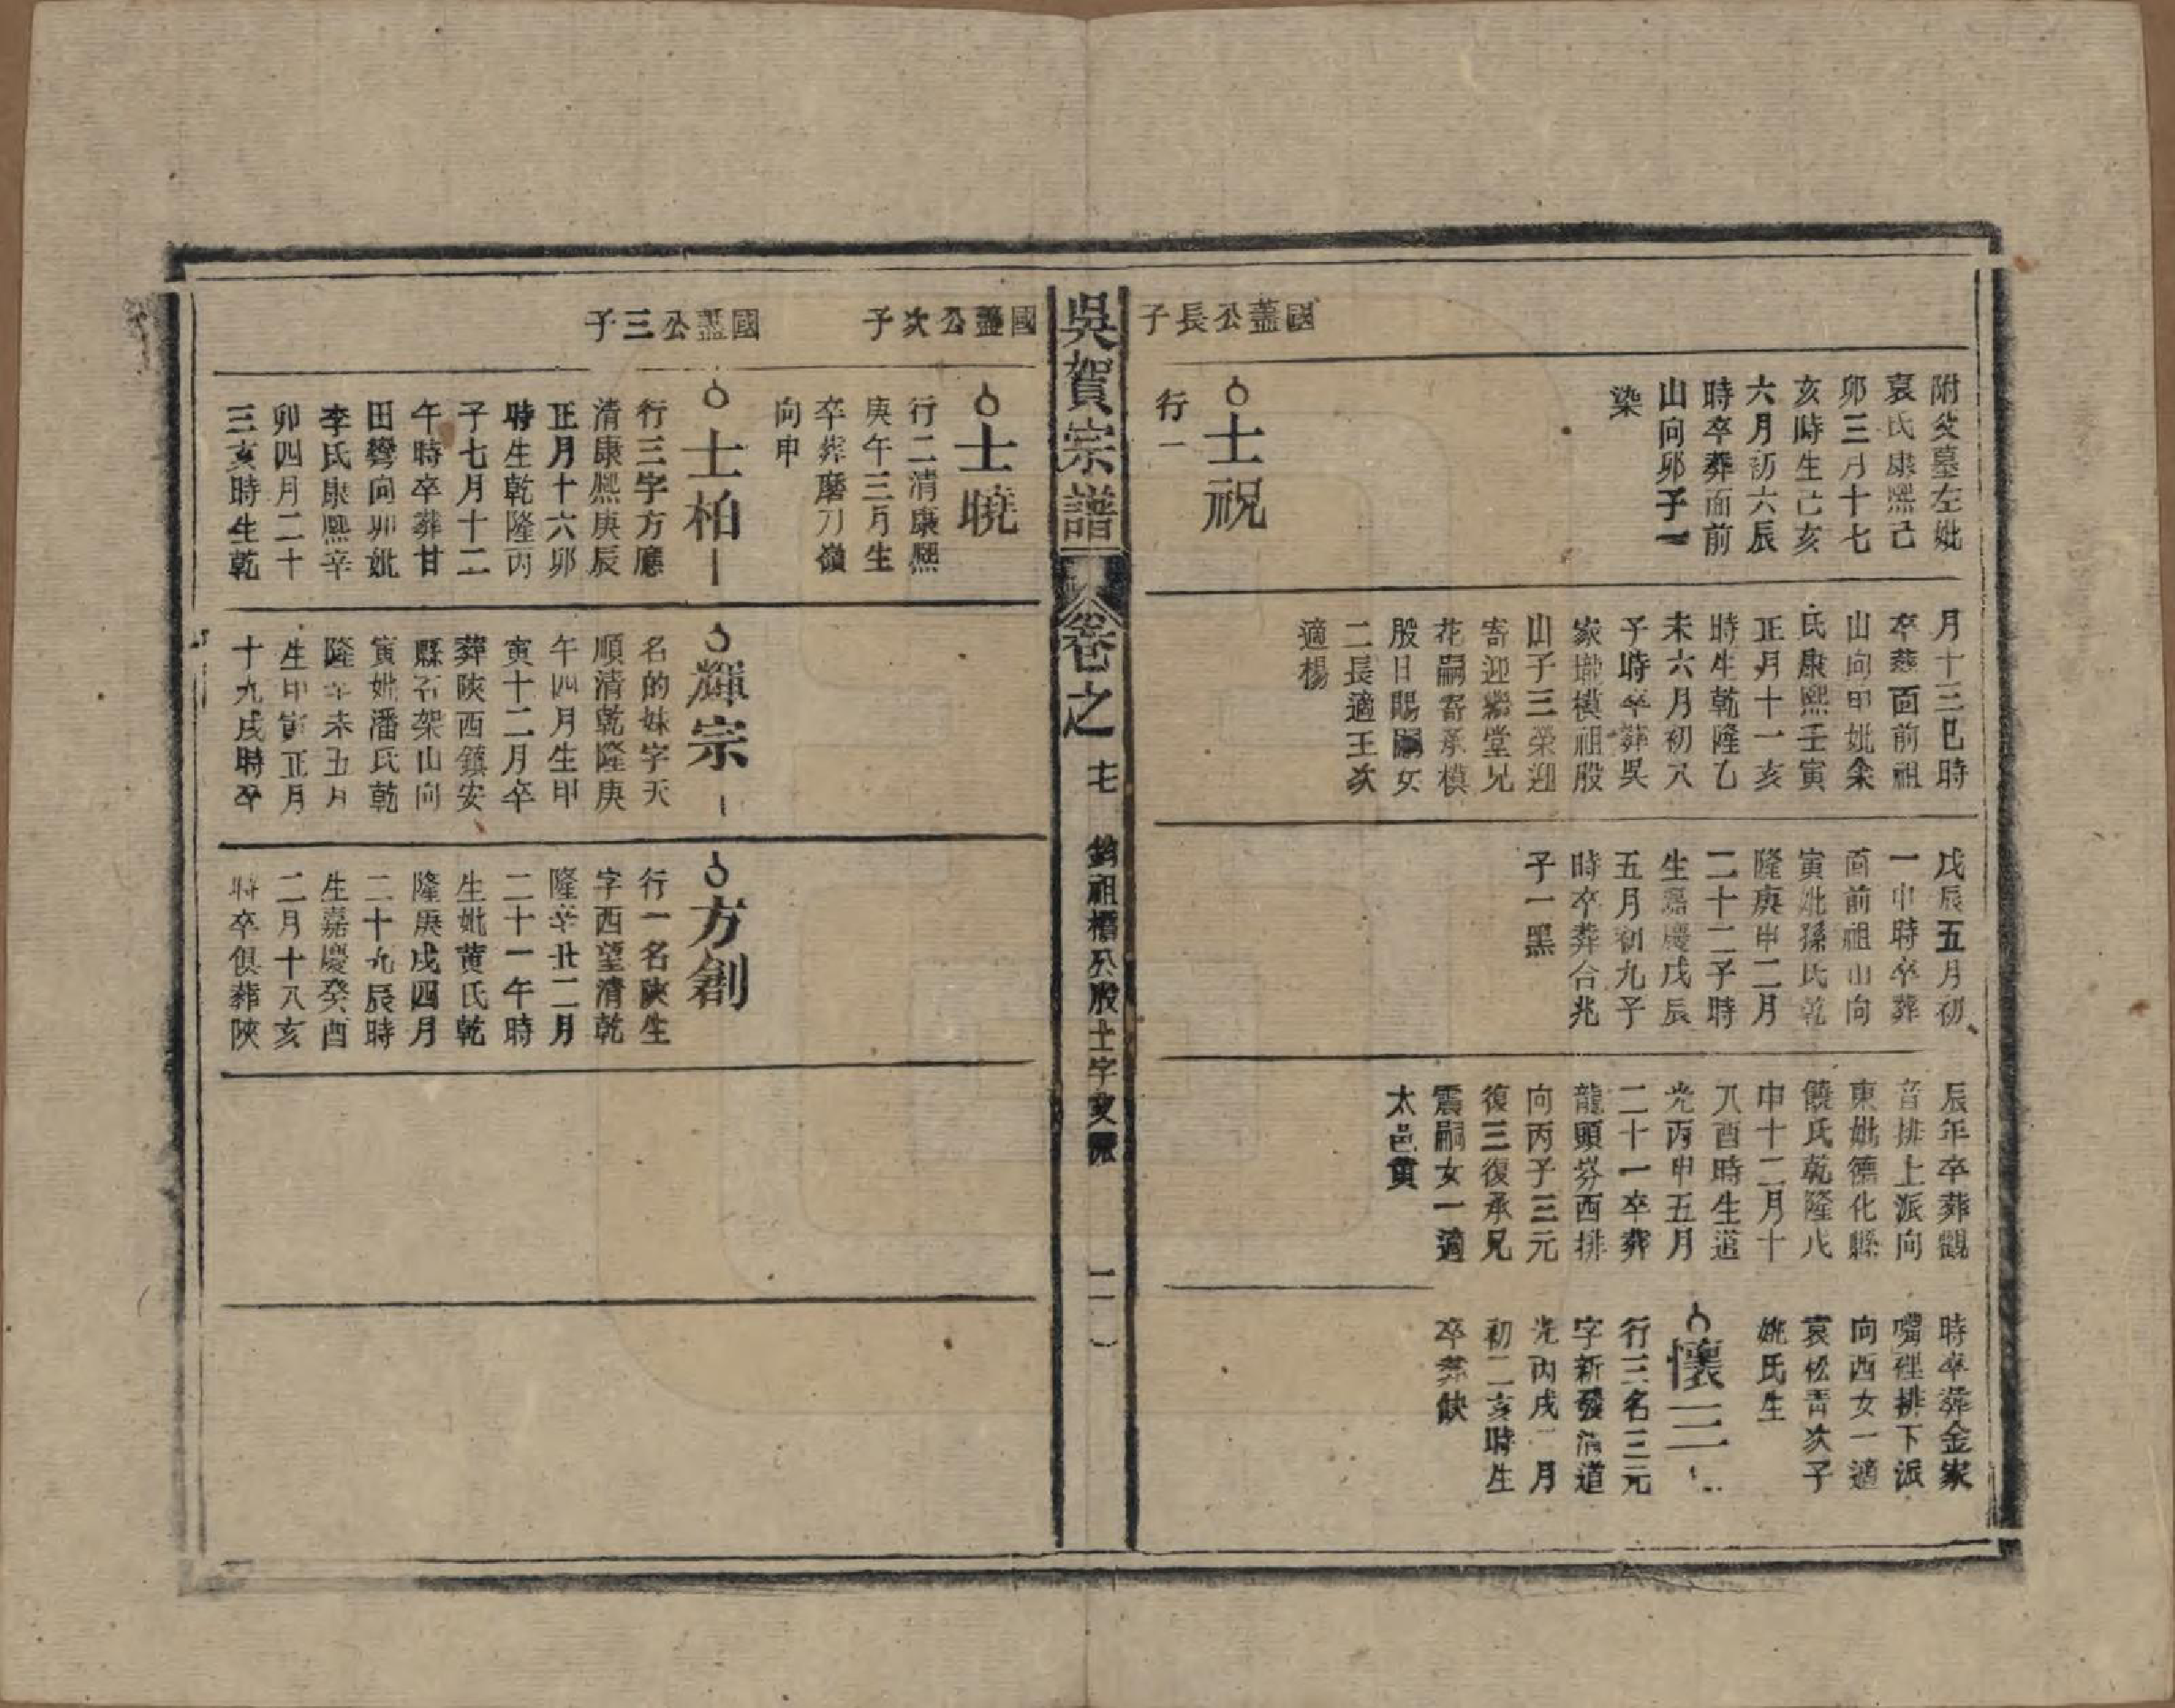 國藎公長子
附父墓左妣
袁氏康熙己
卯三月十七
亥時生己亥
六月初六辰
時卒葬面前
山向卯子一
染
士祝
行一
月十三巳時
卒葬面前祖
山向甲妣余
氏康熙壬寅
正月十一亥
時生乾隆乙
未六月初八
子時卒葬吳
家壠模祖股
山子三榮迎
寄迎繼堂兄
花嗣寄承模
股日賜嗣女
二長適王次
適楊
戊辰五月初
一申時卒葬
面前祖山向
寅妣孫氏乾
隆庚申二月
二十二子時
生嘉慶戊辰
五月初九子
時卒葬合兆
子一黑
辰年卒葬觀
音排上派向
東妣德化縣
饒氏乾隆戊
申十二月十
八酉時生道
光丙申五月
二十一卒葬
龍頭岕西排
向丙子三元
復三復承兄
震嗣女一適
太邑黃
時卒葬金家
嘴裡排下派
向西女一適
袁松青次子
姚氏生
懷三
行三名三元
字新發清道
光丙戌二月
初二亥時生
卒葬缺
吳賀宗譜
卷之
七
祖 公股士字支
二
國藎公次子
國藎公三子
士曉
行二清康熙
庚午三月生
卒葬磨刀嶺
向申
士柏
行三字方應
清康熙庚辰
正月十六卯
時生乾隆丙
子七月十二
午時卒葬甘
田灣向卯妣
李氏康熙辛
卯四月二十
三亥時生乾
輝宗
名的妹字天
順清乾隆庚
午四月生甲
寅十二月卒
葬陝西鎮安
縣石架山向
寅妣潘氏乾
隆辛未五月
生甲寅正月
十九戌時卒
方創
行一名陝生
字西望清乾
隆辛丑二月
二十一午時
生妣黄氏乾
隆庚戌四月
二十九辰時
生嘉慶癸酉
二月十八亥
時卒俱葬陝